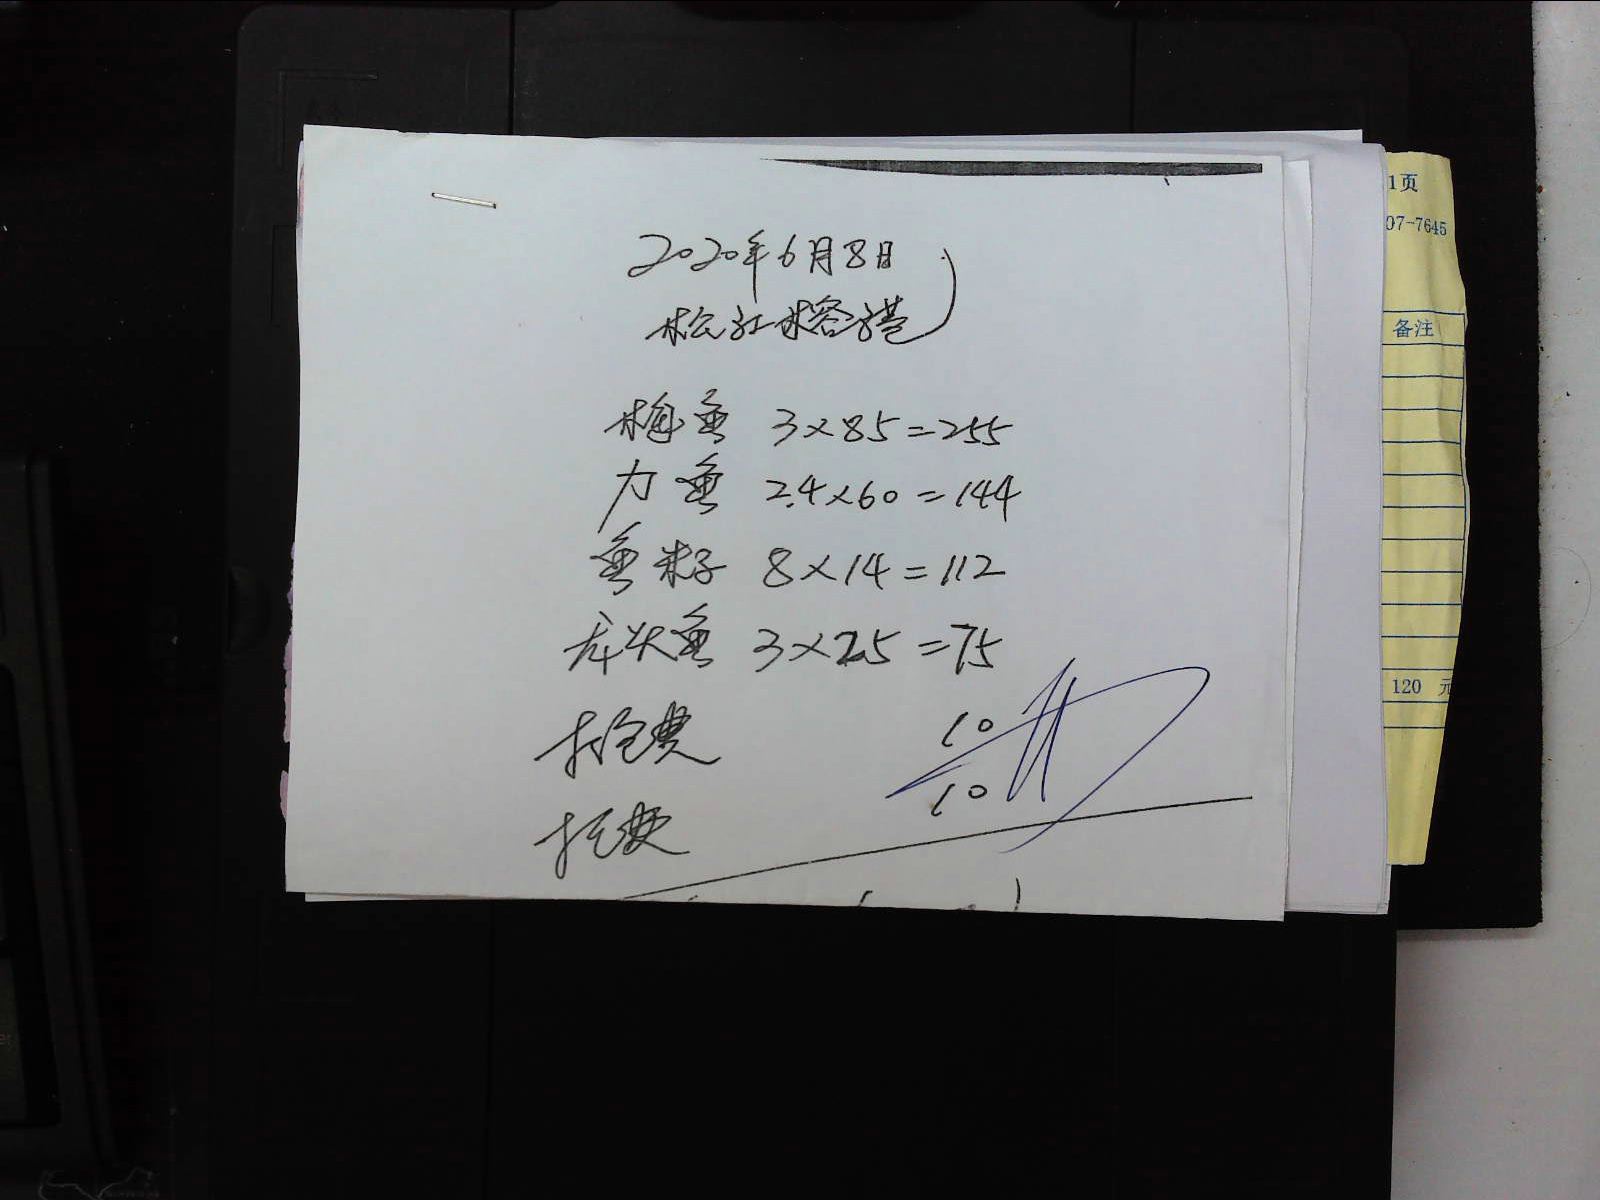 2020年6月8日
松江榕港
梅鱼 3×85=255
力鱼 2.4×60=144
鱼籽 8×14=112
龙头鱼 3×25=75
打包费 10
托费 10
1页
07-7645
备注
120 元